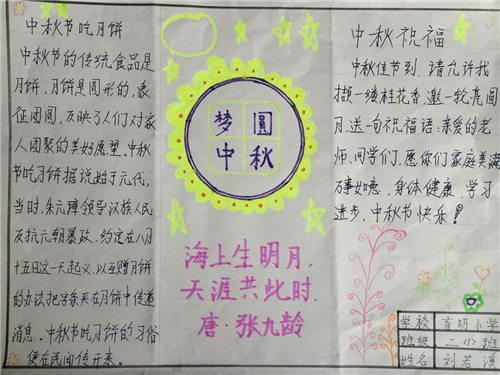 中秋节吃月饼
中秋节的传统食品是
月饼,月饼是圆形的,象
征团圆,反映了人们对家
人团聚的美好愿望。中秋
节吃月饼据说始于元代,
当时,朱元璋领导汉族人民
反抗元朝暴政,约定在八月
十五日这一天起义,以互赠月饼
的办法把字条夹在月饼中传递
消息。中秋节吃月饼的习俗
便在民间传开来。
梦圆
中秋
海上生明月,
天涯共此时.
唐·张九龄
中秋祝福
中秋佳节到,请允许我
撷一缕桂花香,邀一轮亮圆
月,送一句祝福语:亲爱的老
师、同学们,愿你们家庭美满
万事如意、身体健康、学习
进步,中秋节快乐!
学校 育明小学
班级 二〈1〉班
姓名 刘若溪